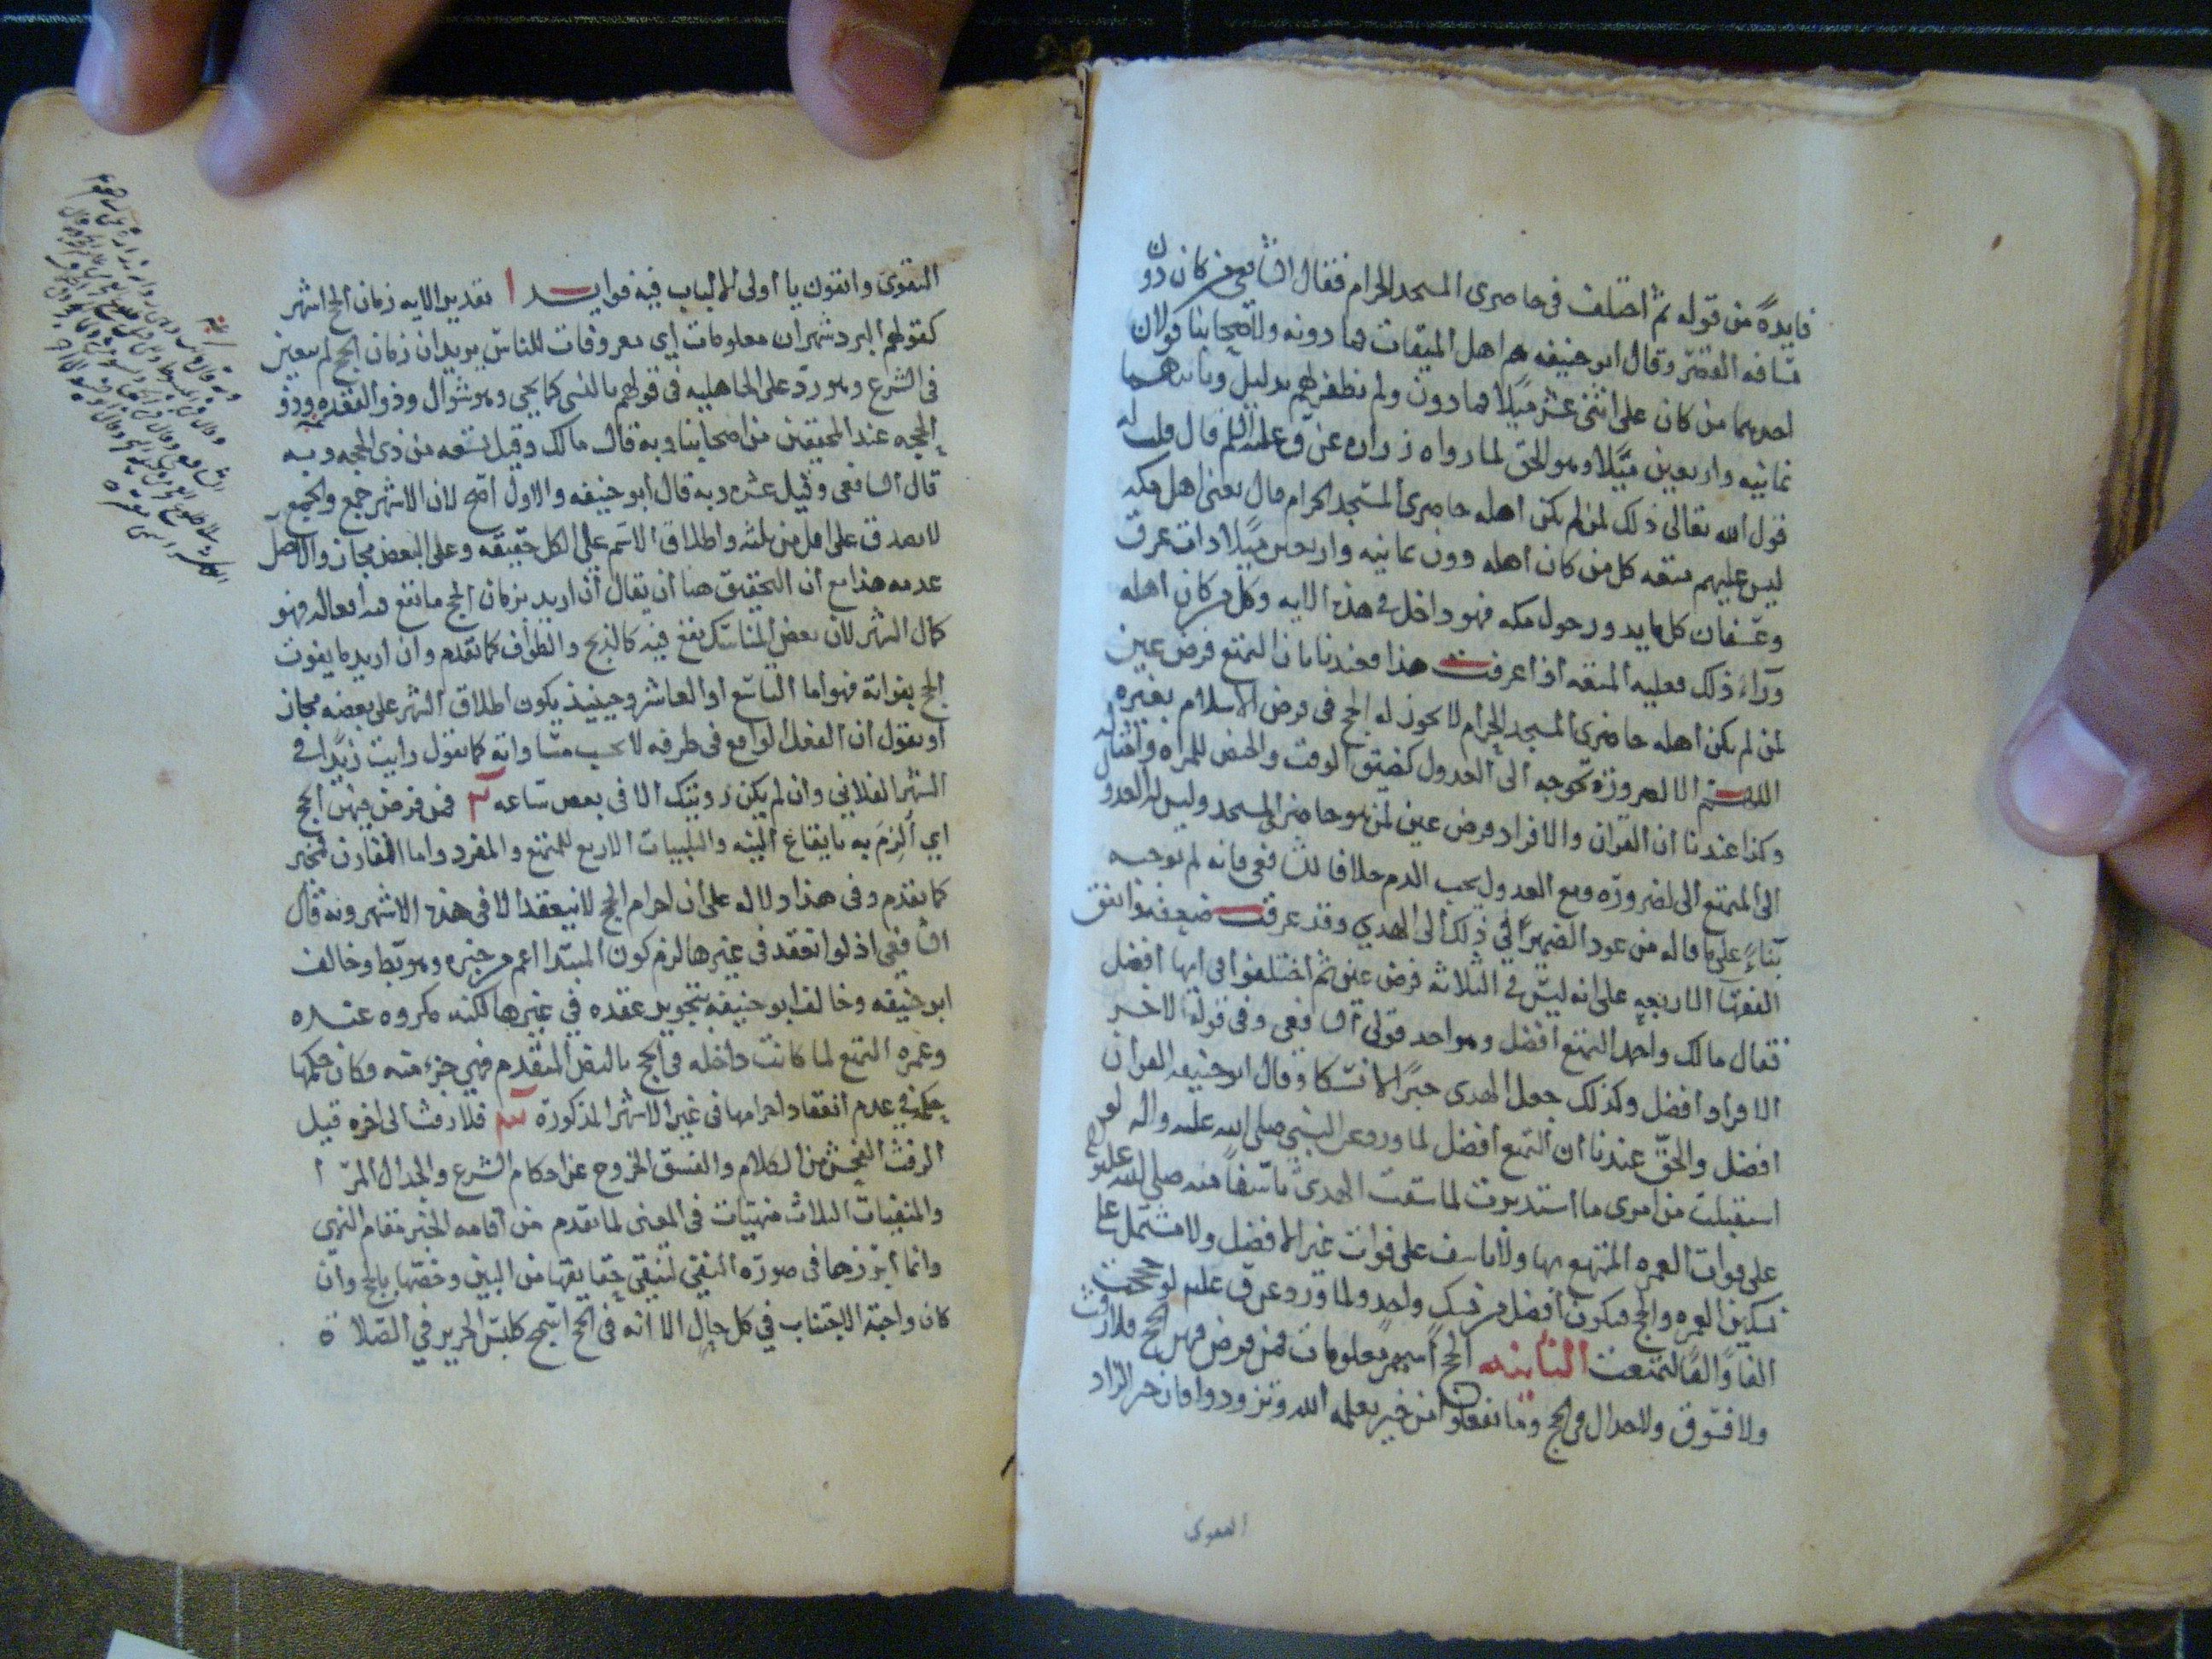 فايدة من قوله ثم اختلف في حاضري المسجد الحرام فقال الشافعي من كان دون
مسافه القصر وقال ابو حنيفه هم اهل الميقات فما دونه ولاصحابنا قولان
احدهما من كان على اثنى عشر ميلا فما دون ولم نظفر لهم بدليل وثانيهما
ثمانيه واربعين ميلا وهو الحق لما رواه زراره عن ق عليه السلم قال قلت له
قول الله تعالى ذلك لمن لم يكن اهله حاضرى المسجد الحرام قال يعنى اهل مكه
ليس عليهم متعه كل من كان اهله دون ثمانيه واربعين ميلا ذات عرق
وعسفان كل ما يدور حول مكه فهو داخل في هذه الايه وكل من كان اهله
ورآء ذلك فعليه المتعه اذا عرفت هذا فعندنا ان التمتع فرض عين
لمن لم يكن اهله حاضرى المسجد الحرام لا يجوز له الحج في فرض الاسلام بغيره
اللهم الا لضرورة تحوجه الى العدول كضيق الوقت والحيض للمراه وامثاله
وكذا عندنا ان القران والافراد فرض عين لمن هو حاضر المسجد وليس له العدول
الى التمتع الى لضرورة ومع العدول يجب الدم خلافا للشافعى فانه لم يوجبه
بناءً على ما قاله من عود الضمير في ذلك الى الهدي وقد عرفت ضعفه واتفق
الفقها الاربعه على انه ليس في الثلاثه فرض عين ثم اختلفوا في ايها افضل
فقال مالك واحمد التمتع افضل وهو احد قولي الشافعي وفي قوله الاخر
الافراد افضل وكذلك جعل الهدى جبرًا لا نسكا وقال ابو حنيفه القران
افضل والحق عندنا ان التمتع افضل لما ورد عن النبي صلى الله عليه واله لو
استقبلت من امرى ما استدبرت لما سقت الهدى تاسفا منه صلى الله عليه
على فوات العمره المتمتع بها ولا تاسف على فوات غير الافضل ولا مشتمل على
نسكين العمره والحج فيكون افضل من نسك واحد ولما ورد عن ق عليه لو حججت
الفا والفا لتمتعت الثانيه الحج اشهر معلومات فمن فرض فيهن الحج فلا رفث
ولا فسوق ولا جدال في الحج وما تفعلوا من خير يعلمه الله وتزودوا فان خير الزاد
التقوى
التقوى واتقون يا أولى الالباب فيه فوايد ا تقدير الايه زمان الحج اشهر
كقولهم البرد شهران معلومات اي معروفات للناس يريد ان زمان الحج لم يتعين
في الشرع وهو رد على الجاهليه في قولهم بالنسى كما يجي وهو شوال وذو القعده وذو
الحجه عند المحققين من اصحابنا وبه قال مالك وقيل تسعه من ذى الحجه وبه
قال الشافعى وقيل عشره وبه قال أبو حنيفه والاول اصح لان الاشهر جمع والجمع
لا يصدق على اقل من ثلثه واطلاق الاسم على الكل حقيقه وعلى البعض مجاز والاصل
عدمه هذا مع ان التحقيق هنا ان يقال ان اريد بزمان الحج ما تقع فيه افعاله فهو
كمال الشهر لان بعض المناسك يقع فيه كالذبح والطواف كما تقدم وان اريد ما يفوت
الحج بفواته فهو اما التاسع او العاشر وحينيذ يكون اطلاق الشهر على بعضه مجاز
او نقول ان الفعل الواقع في ظرفه لا يجب مساواته كما نقول رايت زيدا في
الشهر الفلاني وان لم يكن رويتك الا في بعض ساعه فمن فرض فيهن الحج
اي الزم به بايقاع النيه والتلبيات الاربع للمتمتع والمفرد واما القارن فمخير
كما تقدم وفي هذا دلاله على ان احرام الحج لا ينعقد الا في هذه الاشهر وبه قال
الشافعي اذ لو انعقد في غيرها لزم كون المبتدا اعم من خبره وهو بط وخالف
ابو حنيفه وخالف ابو حنيفه بتجويز عقده في غيرها لكنه مكروه عنده
وعمره التمتع لما كانت داخله في الحج بالنص المتقدم فهي جزء منه فكان حكمها
حكمه في عدم انعقاد احرامها في غير الاشهر المذكورة فلا رفث الى اخره قيل
الرفث الفحش من الكلام والفسق الخروج عن احكام الشرع والجدال المرا
والمنفيات الثلاث منهيات في المعنى لما تقدم من اقامه الخبر مقام النهى
وانما ابرزها في صورة النفي لتنتفي حقايقها من البين وخصها بالحج وان
كان واجبة الاجتناب في كل حال الا انه في الحج اسمج كلبس الحرير في الصلاة